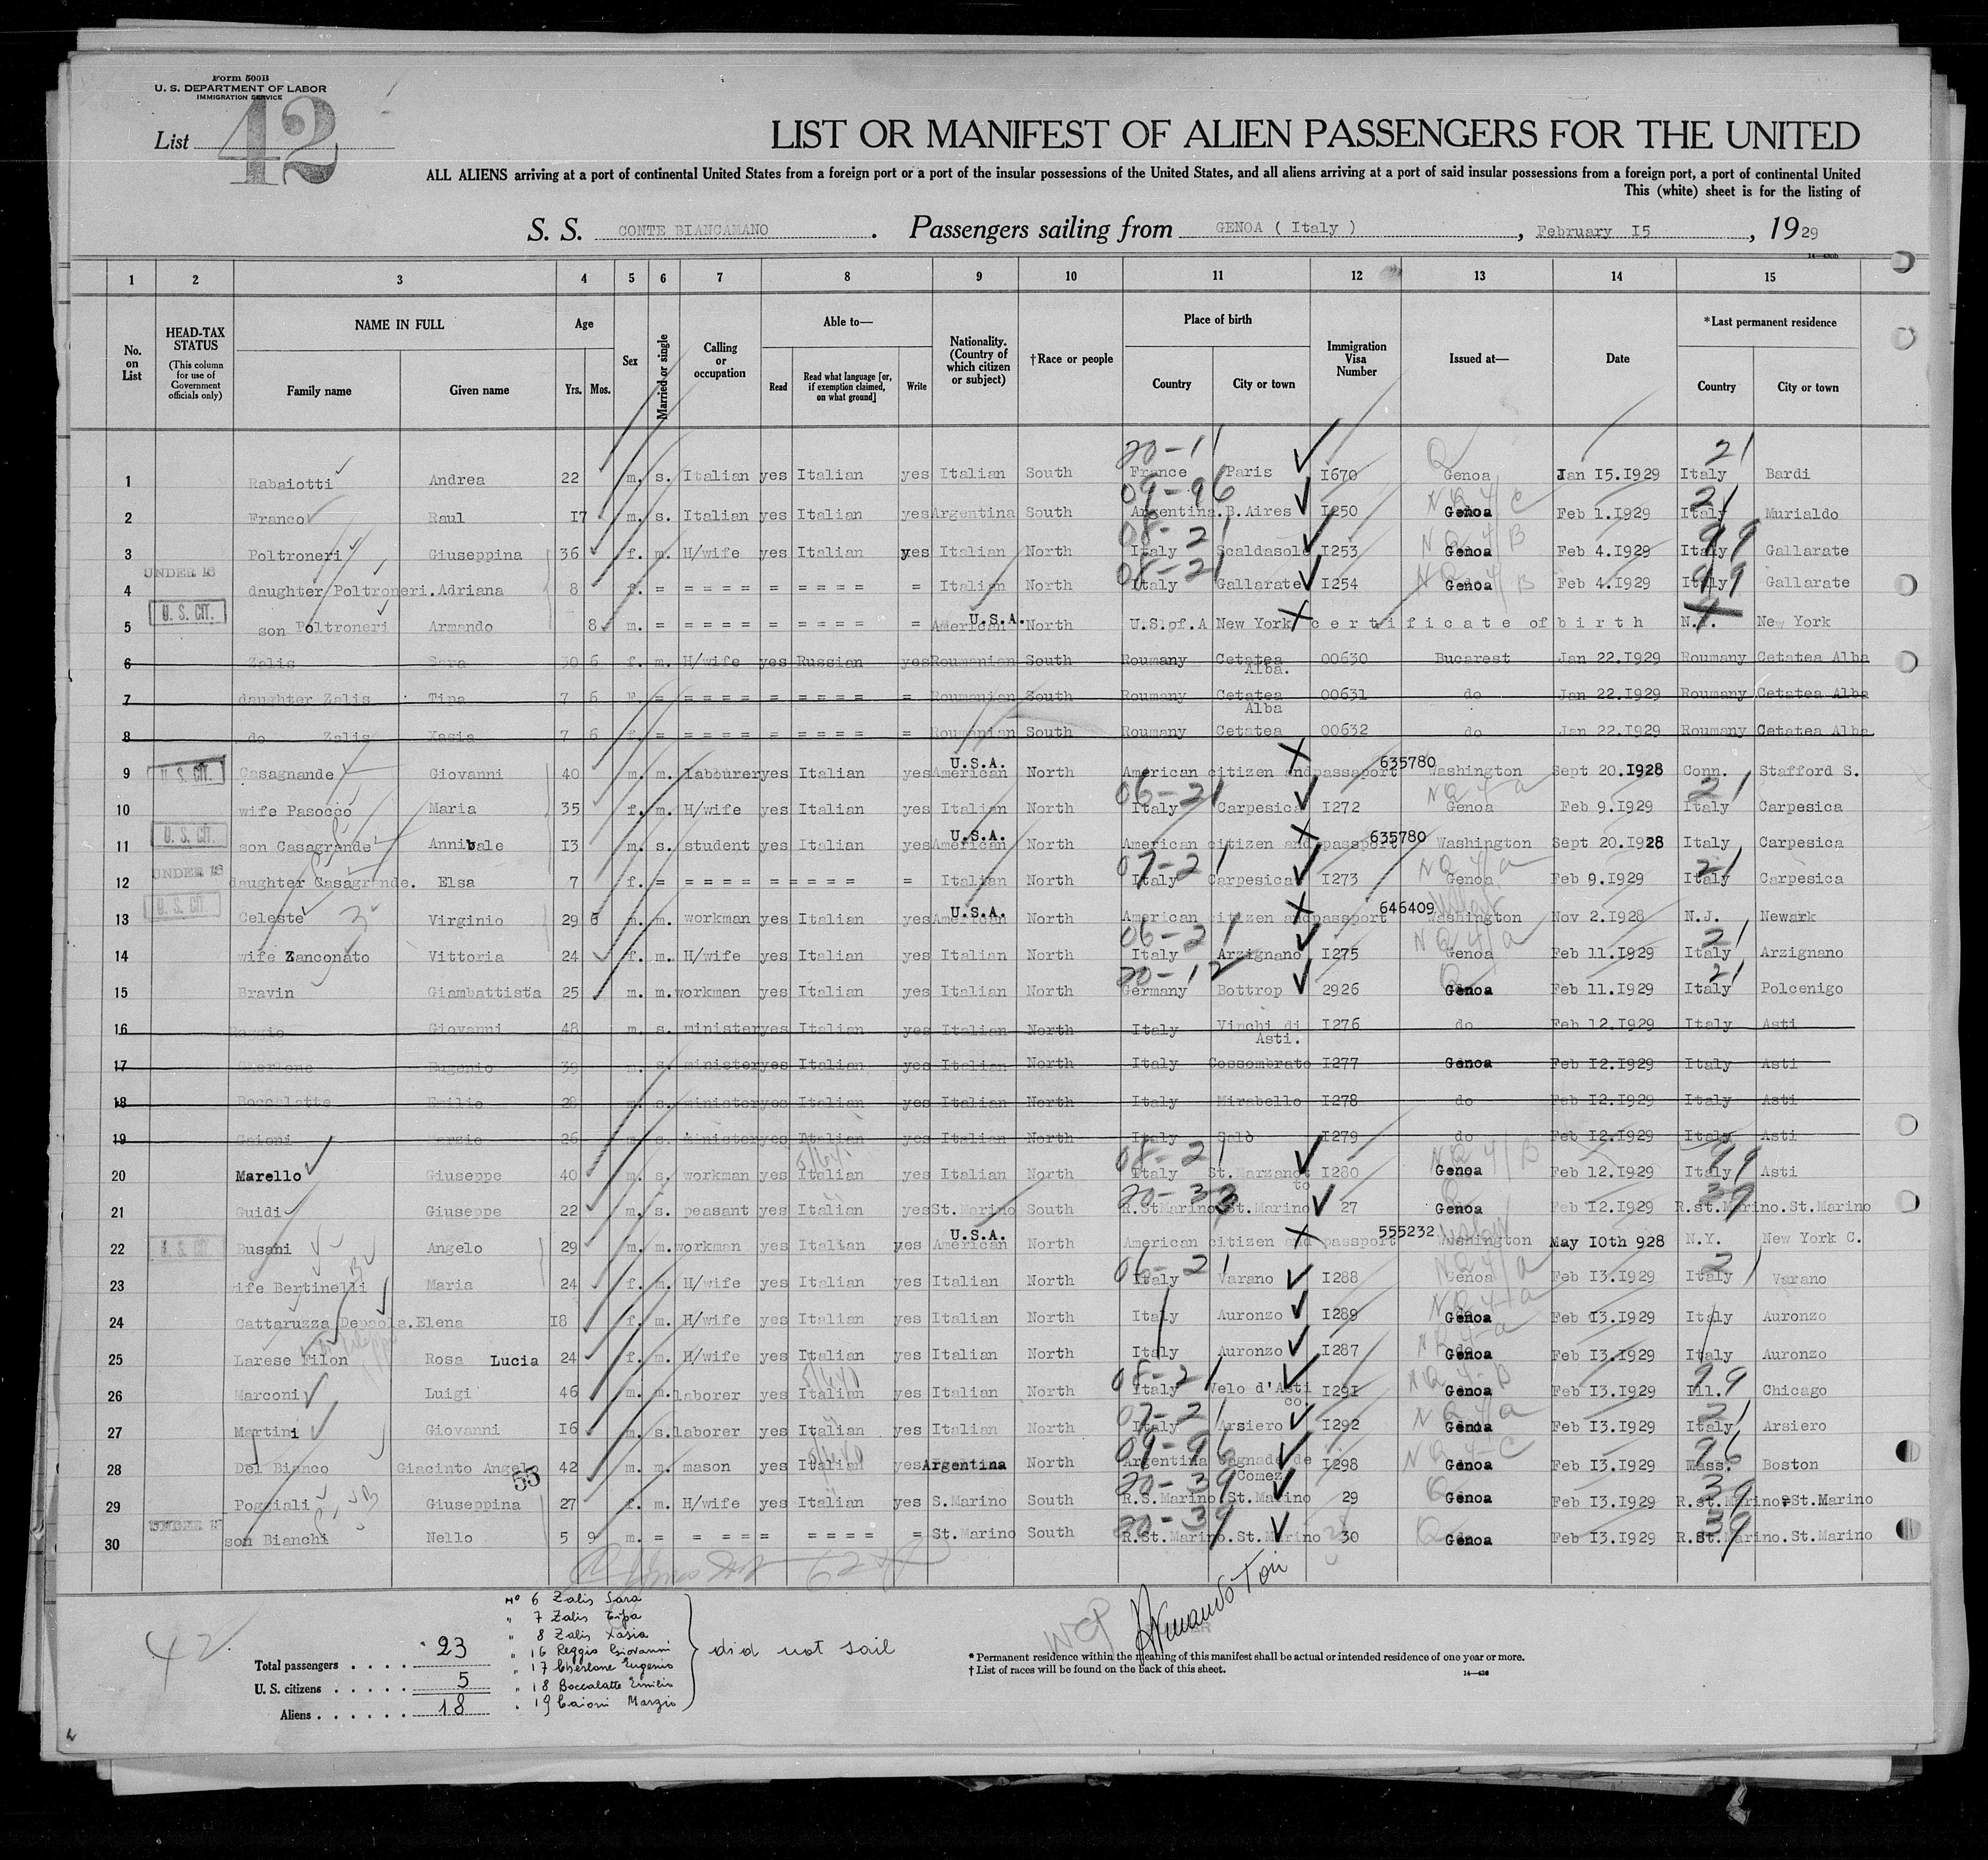 Form 500B
U. S. DEPARTMENT OF LABOR
IMMIGRATION SERVICE
List 42
LIST OR MANIFEST OF ALIEN PASSENGERS FOR THE UNITED
ALL ALIENS arriving at a port of continental United States from a foreign port or a port of the insular possessions of the United States, and all aliens arriving at a port of said insular possessions from a foreign port, a port of continental United
This (white) sheet is for the listing of
S. S. CONTE BIANCAMANO . Passengers sailing from GENOA ( Italy ) , February I5 , 1929
14—430b
1 2 3 4 5 6 7 8 9 10 11 12 13 14 15
No. on List
HEAD-TAX STATUS (This column for use of Government officials only)
NAME IN FULL Family name Given name
Age Yrs. Mos.
Sex
Married or single
Calling or occupation
Able to— Read Read what language [or, if exemption claimed, on what ground] Write
Nationality. (Country of which citizen or subject)
†Race or people
Place of birth Country City or town
Immigration Visa Number
Issued at—
Date
*Last permanent residence Country City or town
20-11 21
1 Rabaiotti Andrea 22 m. s. Italian yes Italian yes Italian South France Paris I670 Genoa Jan I5.I929 Italy Bardi
09-96
2 Franco Raul I7 m. s. Italian yes Italian yes Argentina South Argentina.B.Aires I250 Genoa Feb 1.I929 Italy Murialdo
08-21 99
3 Poltroneri Giuseppina 36 f. m. H/wife yes Italian yes Italian North Italy Scaldasole I253 Genoa Feb 4.I929 Italy Gallarate
UNDER 16 08-21 99
4 daughter Poltroneri.Adriana 8 f. = = = = = = = = = = = Italian North Italy Gallarate I254 Genoa Feb 4.I929 Italy Gallarate
U. S. CIT. U.S.A.
5 son Poltroneri Armando 8 m. = = = = = = = = = = = American North U.S.of.A New York certificate of birth N.Y. New York
6 Zalis Sara 30 6 f. m. H/wife yes Russian yes Roumanian South Roumany Cetatea Alba. 00630 Bucarest Jan 22.I929 Roumany Cetatea Alba
7 daughter Zalis Tipa 7 6 F. = = = = = = = = = = = Roumanian South Roumany Cetatea Alba 00631 do Jan 22.I929 Roumany Cetatea Alba
8 do Zalis Xasia 7 6 f. = = = = = = = = = = = Roumanian South Roumany Cetatea 00632 do Jan 22.I929 Roumany Cetatea Alba
U.S.A. 635780
9 U. S. CIT. Casagnande Giovanni 40 m. m. labburer yes Italian yes American North American citizen and passaport Washington Sept 20.I928 Conn. Stafford S.
06-21 21
10 wife Pasocco Maria 35 f. m. H/wife yes Italian yes Italian North Italy Carpesica I272 Genoa Feb 9.I929 Italy Carpesica
U. S. CIT. U.S.A. 635780
11 son Casagrande Annibale I3 m. s. student yes Italian yes American North American citizen and passport Washington Sept 20.I928 Italy Carpesica
UNDER 16 07-21 21
12 daughter Casagrande. Elsa 7 f. = = = = = = = = = = Italian North Italy Carpesica I273 Genoa Feb 9.I929 Italy Carpesica
U. S. CIT. U.S.A. 646409
13 Celeste Virginio 29 6 m. m. workman yes Italian yes American North American citizen and passport Washington Nov 2.I928 N.J. Newark
06-21 21
14 wife Zanconato Vittoria 24 f. m. H/wife yes Italian yes Italian North Italy Arzignano I275 Genoa Feb 11.I929 Italy Arzignano
20-12 21
15 Bravin Giambattista 25 m. m. workman yes Italian yes Italian North Germany Bottrop 2926 Genoa Feb 11.I929 Italy Polcenigo
16 Reggio Giovanni 48 m. s. minister yes Italian yes Italian North Italy Vinchi di Asti. I276 do Feb I2.I929 Italy Asti
17 Eugenio 39 m. s. minister yes Italian yes Italian North Italy Cossombrato I277 Genoa Feb I2.I929 Italy Asti
18 Boccalatte Emilio 28 m. s. minister yes Italian yes Italian North Italy Mirabello I278 do Feb I2.I929 Italy Asti
19 Caioni Marzio 26 m. s. minister yes Italian yes Italian North Italy Salò I279 do Feb I2.I929 Italy Asti
08-21 99
20 Marello Giuseppe 40 m. s. workman yes Italian yes Italian North Italy St.Marzanoto I280 Genoa Feb I2.I929 Italy Asti
20-33 39
21 Guidi Giuseppe 22 m. s. peasant yes Italian yes St.Marino South R.StMarino St.Marino 27 Genoa Feb I2.I929 R.st.Marino.St.Marino
U.S.A. 555232
22 U. S. CIT. Busani Angelo 29 m. m. workman yes Italian yes American North American citizen and passport Washington May I0th 928 N.Y. New York C.
06-21 21
23 ife Bertinelli Maria 24 f. m. H/wife yes Italian yes Italian North Italy Varano I288 Genoa Feb I3.I929 Italy Varano
24 Cattaruzza Depaola.Elena I8 f. m. H/wife yes Italian yes Italian North Italy Auronzo I289 Genoa Feb I3.I929 Italy Auronzo
25 Larese Filon Rosa Lucia 24 f. m. H/wife yes Italian yes Italian North Italy Auronzo I287 Genoa Feb I3.I929 Italy Auronzo
08-21 99
26 Marconi Luigi 46 m. m. laborer yes Italian yes Italian North Italy Velo d'Astico. I29I Genoa Feb I3.I929 Ill. Chicago
07-21 21
27 Martini Giovanni I6 m. s. laborer yes Italian yes Italian North Italy Arsiero I292 Genoa Feb I3.I929 Italy Arsiero
09-96 96
28 Del Bianco Giacinto Angelo 42 m. m. mason yes Italian yes Argentina North Argentina Comez I298 Genoa Feb I3.I929 Mass. Boston
55 20-39 39
29 Poggiali Giuseppina 27 f. m. H/wife yes Italian yes S.Marino South R.S.Marino St.Marino 29 Genoa Feb I3.I929 R.st.Marino.St.Marino
UNDER 16 20-39 39
30 son Bianchi Nello 5 9 m. = = = = = = = = = = St.Marino South R.St.Marino.St.Marino 30 Genoa Feb I3.I929 R.St.Marino.St.Marino
42
Total passengers . . . . 23
U. S. citizens . . . . . 5
Aliens . . . . . . 18
No 6 Zalis Sara
" 7 Zalis Tipa
" 8 Zalis Xasia
" 16 Reggio Giovanni
" 17 Cherlone Eugenio
" 18 Boccalatte Emilio
" 19 Caioni Marzio
did not sail
* Permanent residence within the meaning of this manifest shall be actual or intended residence of one year or more.
† List of races will be found on the back of this sheet.
14—430